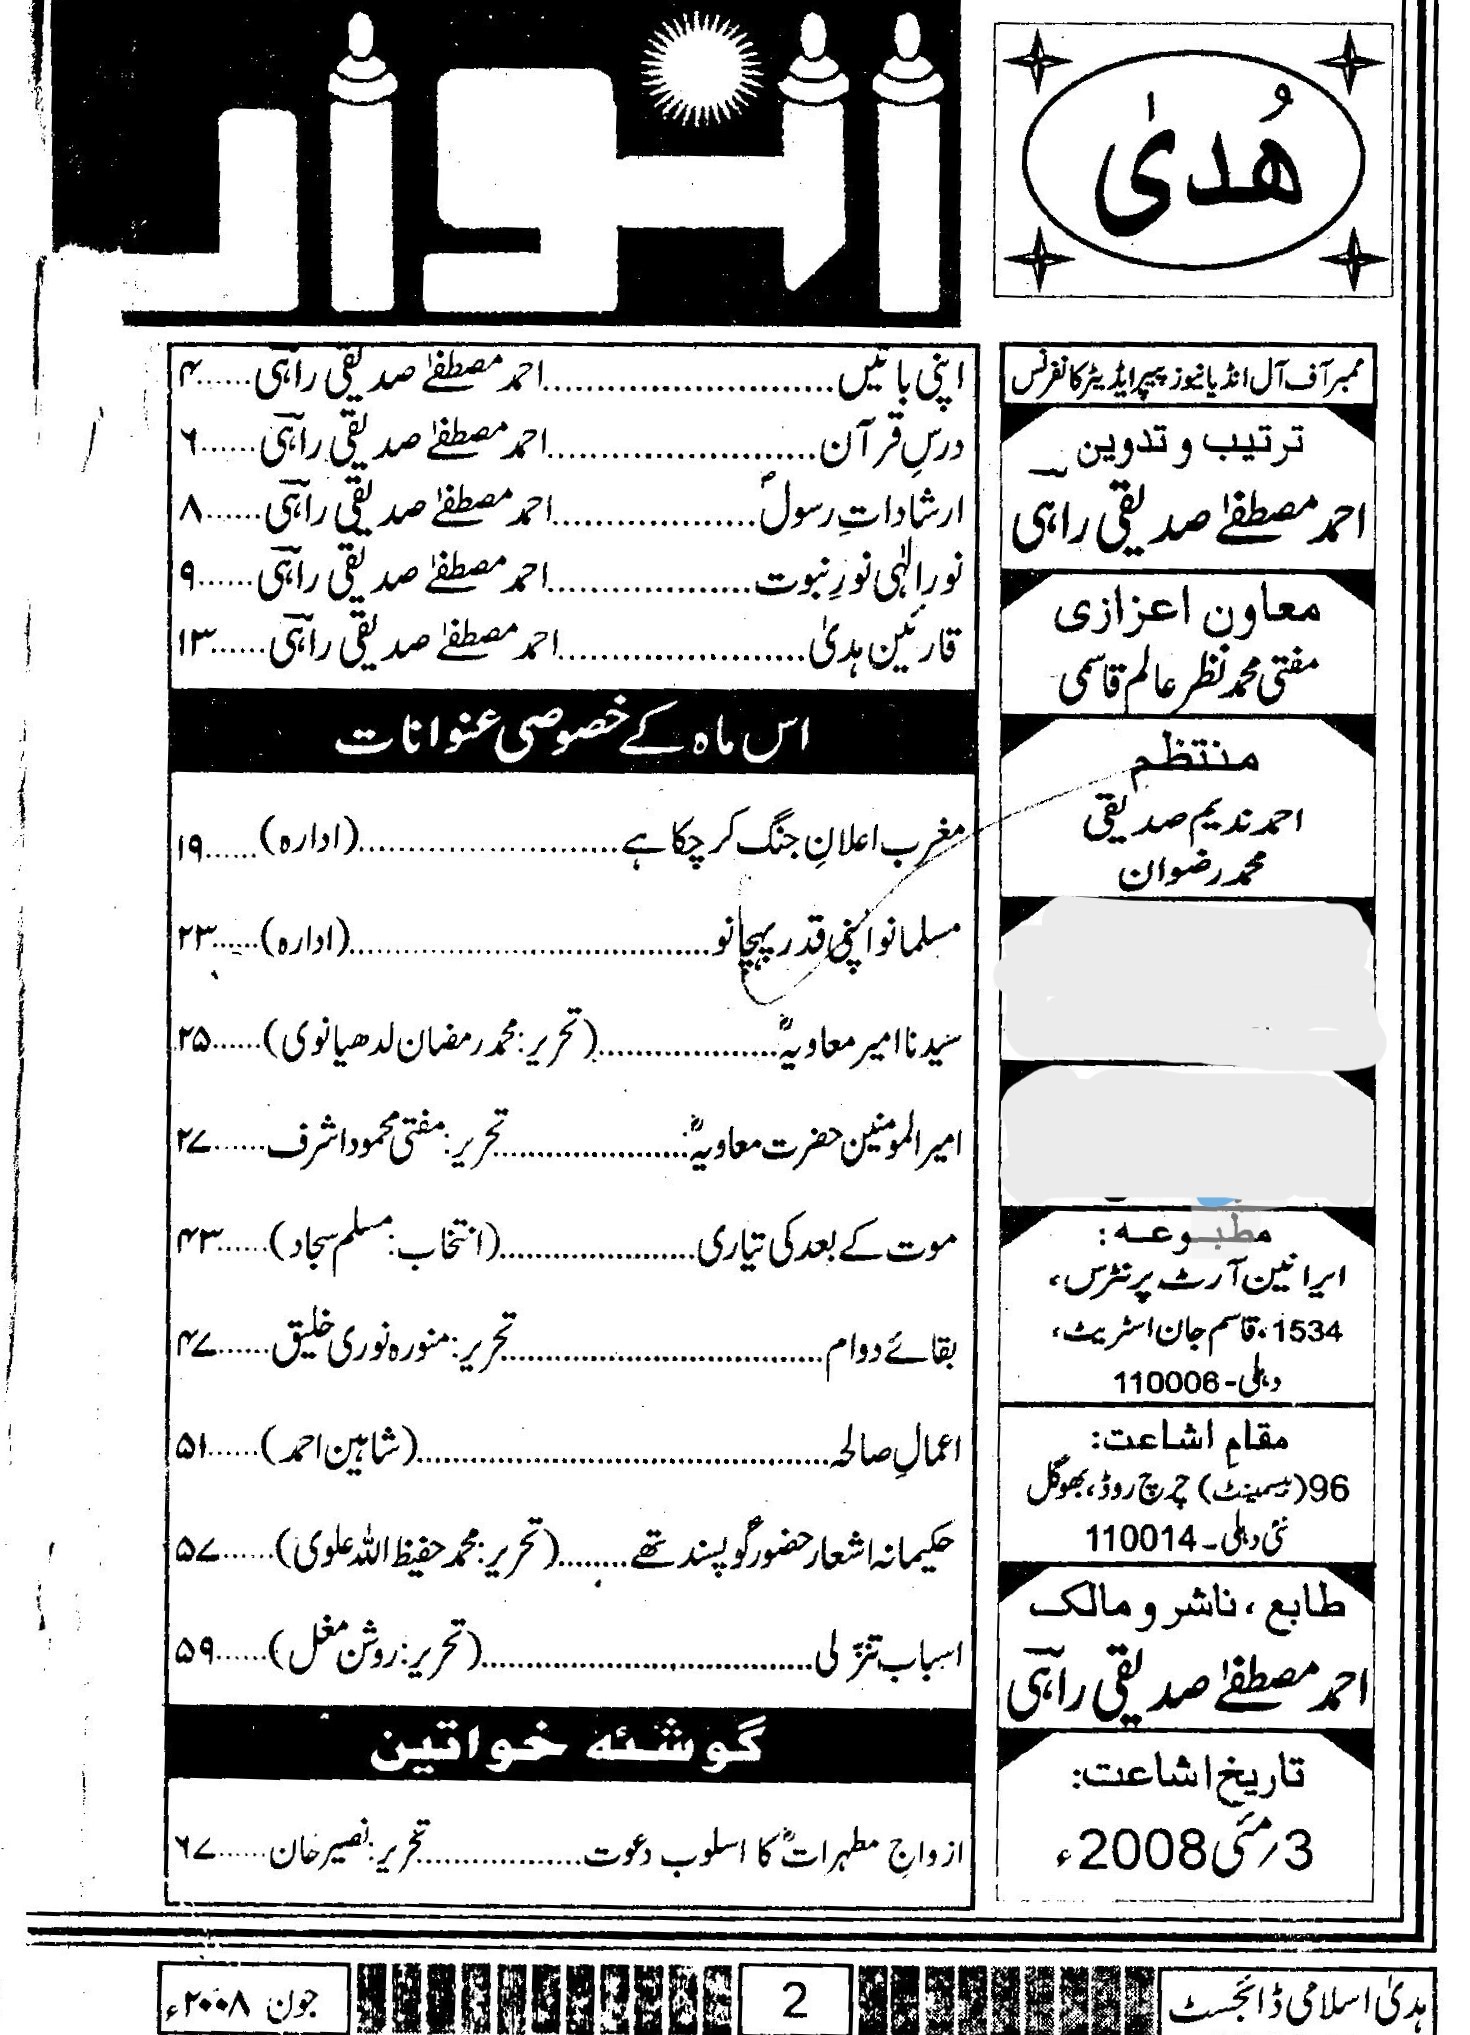 ھُدیٰ
انوار
ممبر آف آل انڈیا نیوز پیپر ایڈیٹر کانفرنس
ترتیب و تدوین
احمد مصطفےٰ صدیقی راہی
معاون اعزازی
مفتی محمد نظر عالم قاسمی
منتظم
احمد ندیم صدیقی
محمد رضوان
مطبوعہ:
ایرانین آرٹ پرنٹرس،
1534، قاسم جان اسٹریٹ،
دہلی-110006
مقامِ اشاعت:
96(بیسمینٹ) چرچ روڈ، بھوگل
نئی دہلی۔110014
طابع، ناشر و مالک
احمد مصطفےٰ صدیقی راہی
تاریخ اشاعت:
3؍مئی 2008ء
اپنی باتیں............................احمد مصطفےٰ صدیقی راہی......۴
درسِ قرآن..........................احمد مصطفےٰ صدیقی راہی......۶
ارشاداتِ رسولؐ....................احمد مصطفےٰ صدیقی راہی......۸
نورِ الٰہی نورِ نبوت....................احمد مصطفےٰ صدیقی راہی......۹
قارئین ہدیٰ........................احمد مصطفےٰ صدیقی راہی......۱۳
اس ماہ کے خصوصی عنوانات
مغرب اعلانِ جنگ کر چکا ہے..........................(ادارہ)......۱۹
مسلمانو اپنی قدر پہچانو....................................(ادارہ)......۲۳
سیدنا امیر معاویہؓ..................(تحریر: محمد رمضان لدھیانوی)......۲۵
امیر المومنین حضرت معاویہؓ:...................تحریر: مفتی محمود اشرف......۲۷
موت کے بعد کی تیاری....................(انتخاب: مسلم سجاد)......۴۳
بقائے دوام................................تحریر: منورہ نوری خلیق......۴۷
اعمالِ صالحہ..........................................(شاہین احمد)......۵۱
حکیمانہ اشعار حضورؐ کو پسند تھے........(تحریر: محمد حفیظ اللہ علوی)......۵۷
اسباب تنزّلی..................................(تحریر: روشن مغل)......۵۹
گوشئہ خواتین
ازواجِ مطہراتؓ کا اسلوب دعوت................تحریر: نصیر خان......۶۷
ہدیٰ اسلامی ڈائجسٹ
2
جون ۲۰۰۸ء